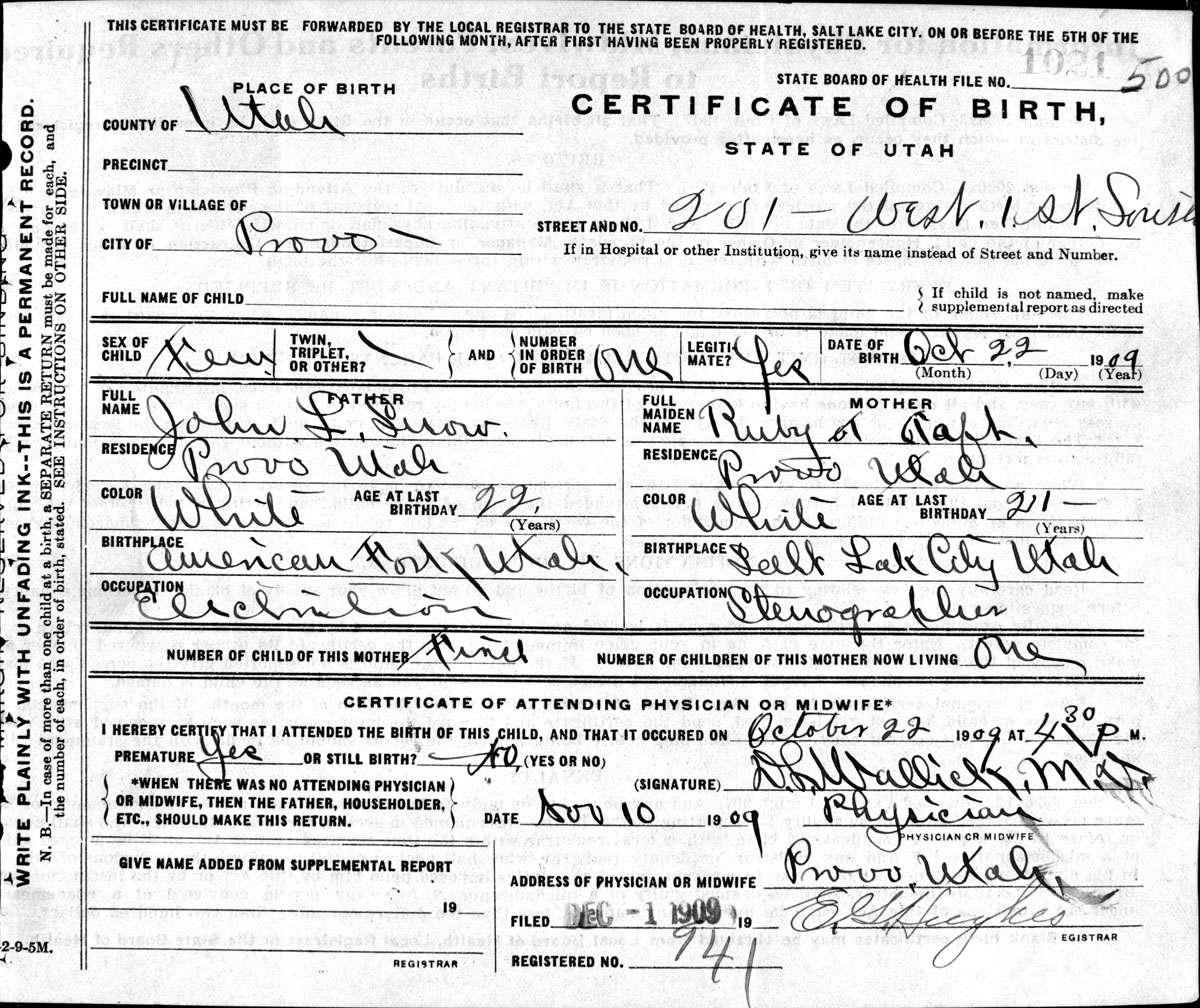 THIS CERTIFICATE MUST BE FORWARDED BY THE LOCAL REGISTRAR TO THE STATE BOARD OF HEALTH, SALT LAKE CITY. ON OR BEFORE THE 5TH OF THE
FOLLOWING MONTH, AFTER FIRST HAVING BEEN PROPERLY REGISTERED.
STATE BOARD OF HEALTH FILE NO. 1021 500
PLACE OF BIRTH
CERTIFICATE OF BIRTH,
COUNTY OF Utah
STATE OF UTAH
PRECINCT
TOWN OR VILLAGE OF
CITY OF Provo
STREET AND NO. 201 West 1 St.
If in Hospital or other Institution, give its name instead of Street and Number.
FULL NAME OF CHILD
If child is not named, make
supplemental report as directed
SEX OF CHILD Fem. TWIN, TRIPLET, OR OTHER? AND NUMBER IN ORDER OF BIRTH One LEGITIMATE? Yes DATE OF BIRTH Oct 22, 1909
(Month) (Day) (Year)
FATHER
FULL NAME John L. Snow.
RESIDENCE Provo Utah
COLOR White AGE AT LAST BIRTHDAY 22,
(Years)
BIRTHPLACE American Fork, Utah,
OCCUPATION
MOTHER
FULL MAIDEN NAME Ruby Taft.
RESIDENCE Provo Utah
COLOR White AGE AT LAST BIRTHDAY 24
(Years)
BIRTHPLACE Salt Lake City Utah
OCCUPATION Stenographer
NUMBER OF CHILD OF THIS MOTHER First NUMBER OF CHILDREN OF THIS MOTHER NOW LIVING One
CERTIFICATE OF ATTENDING PHYSICIAN OR MIDWIFE*
I HEREBY CERTIFY THAT I ATTENDED THE BIRTH OF THIS CHILD, AND THAT IT OCCURED ON October 22 1909 AT 4 30 P M.
PREMATURE Yes OR STILL BIRTH? No (YES OR NO)
*WHEN THERE WAS NO ATTENDING PHYSICIAN
OR MIDWIFE, THEN THE FATHER, HOUSEHOLDER,
ETC., SHOULD MAKE THIS RETURN.
(SIGNATURE) Wallick, M.D.
DATE Nov 10 1909 Physician
PHYSICIAN OR MIDWIFE
GIVE NAME ADDED FROM SUPPLEMENTAL REPORT
19
REGISTRAR
ADDRESS OF PHYSICIAN OR MIDWIFE Provo, Utah,
FILED DEC -1 1909 19
EGISTRAR
REGISTERED NO. 941
WRITE PLAINLY WITH UNFADING INK--THIS IS A PERMANENT RECORD.
N. B.—In case of more than one child at a birth, a SEPARATE RETURN must be made for each, and
the number of each, in order of birth, stated. SEE INSTRUCTIONS ON OTHER SIDE.
2-9-5M.